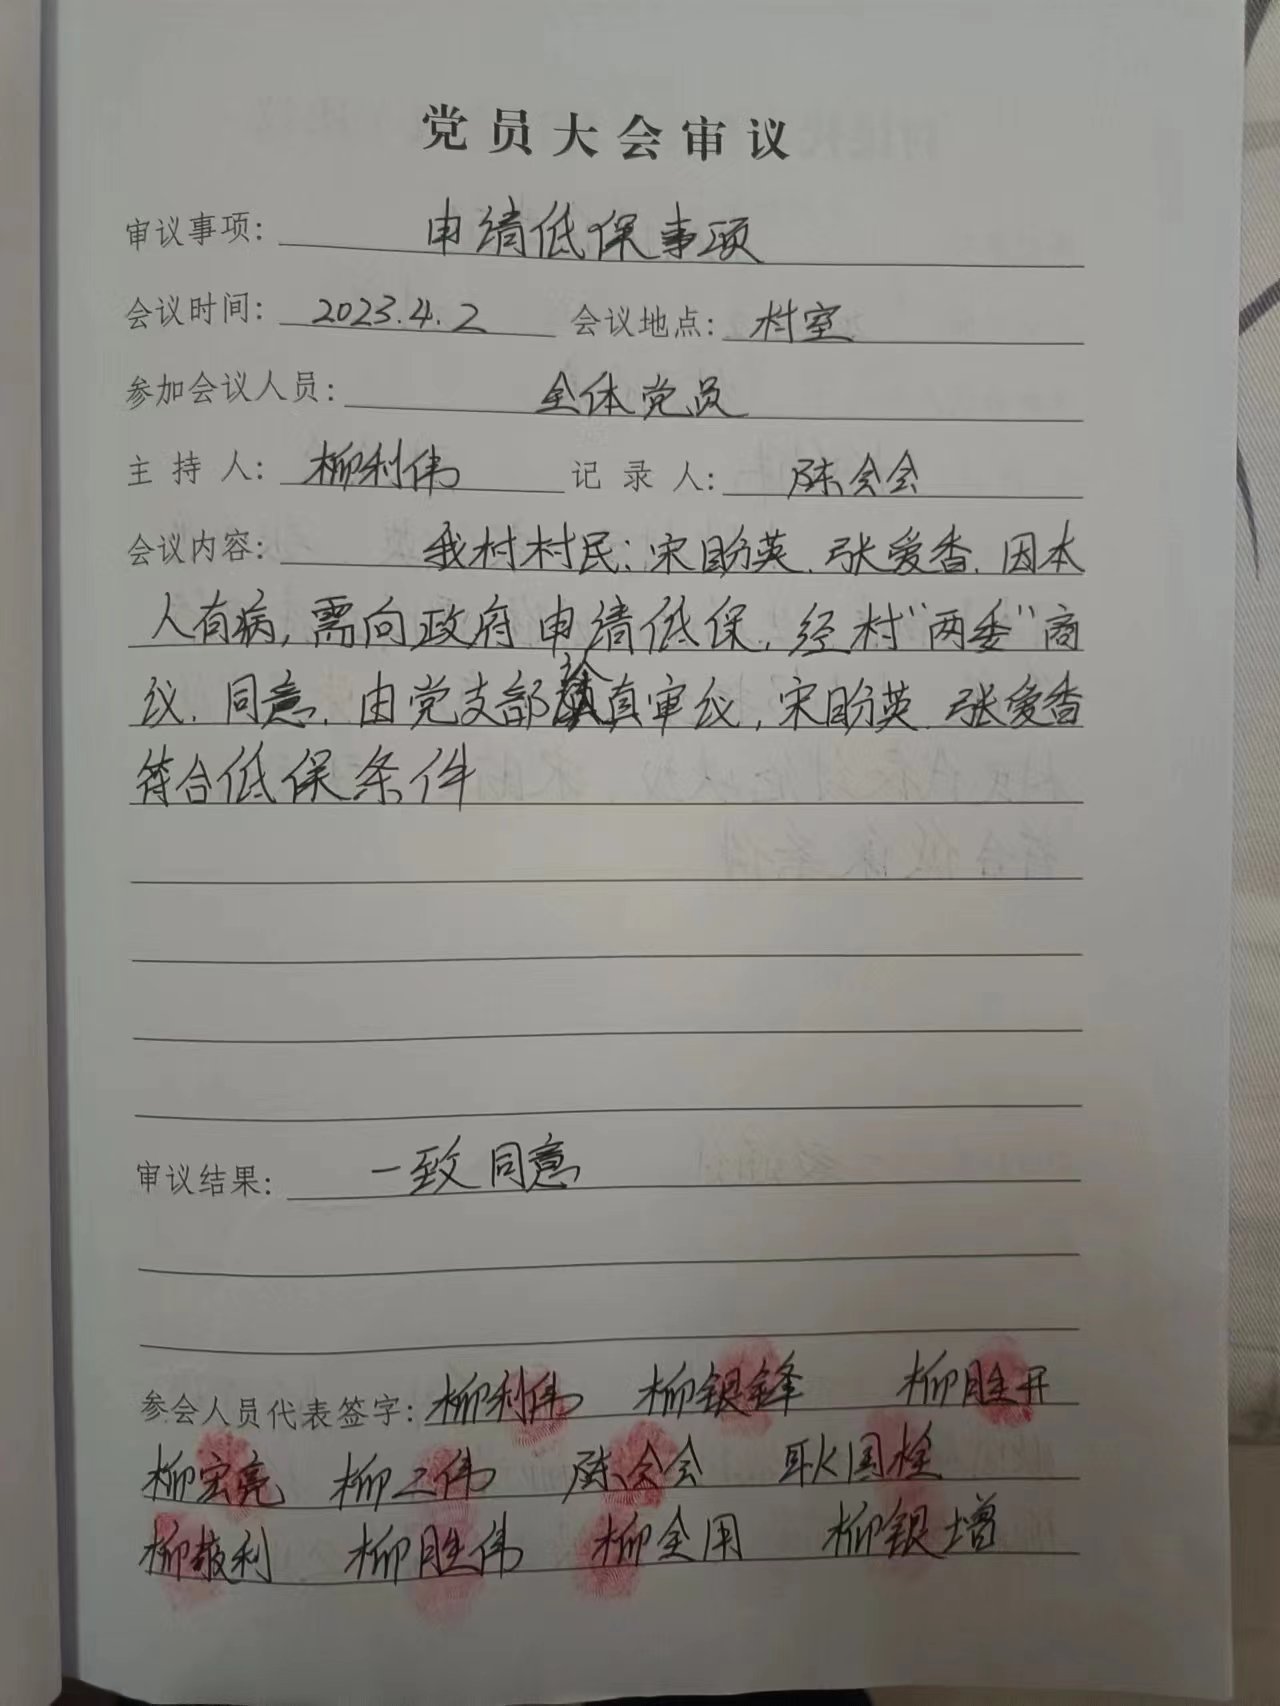 党员大会审议
审议事项: 申请低保事项
会议时间: 2023.4.2 会议地点: 村室
参加会议人员: 全体党员
主持人: 柳利伟 记录人: 陈会会
会议内容: 我村村民:宋盼英、张爱香、因本
人有病,需向政府申请低保,经村"两委"商
议、同意、由党支部认真审议,宋盼英、张爱香
符合低保条件
审议结果: 一致同意
参会人员代表签字: 柳利伟 柳银锋 柳胜开
柳宏亮 柳二伟 陈会会 耿国栓
柳敖利 柳胜伟 柳全用 柳银增